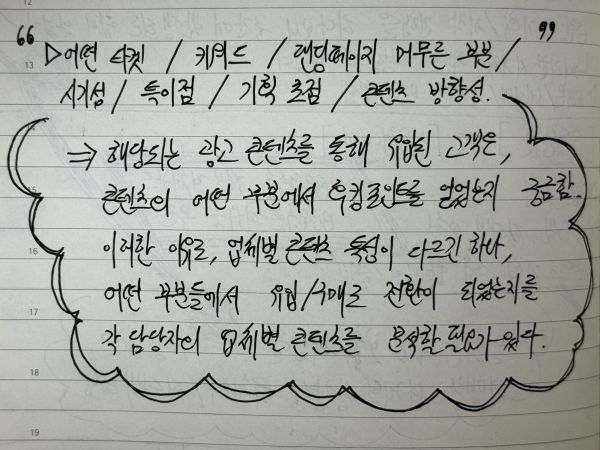 12
“ ”
13 ▷어떤 타겟 / 키워드 / 랜딩페이지 머무른 부분 /
시기성 / 특이점 / 기획 초점 / 콘텐츠 방향성.
⇒ 해당되는 광고 콘텐츠를 통해 유입된 고객은,
콘텐츠의 어떤 부분에서 후킹포인트를 얻었는지 궁금함.
16 이러한 이유로, 업체별 콘텐츠 특성이 다르긴 하나,
어떤 부분들에서 유입/구매로 전환이 되었는지를
17
각 담당자의 업체별 콘텐츠를 분석할 필요가 있다.
18
19